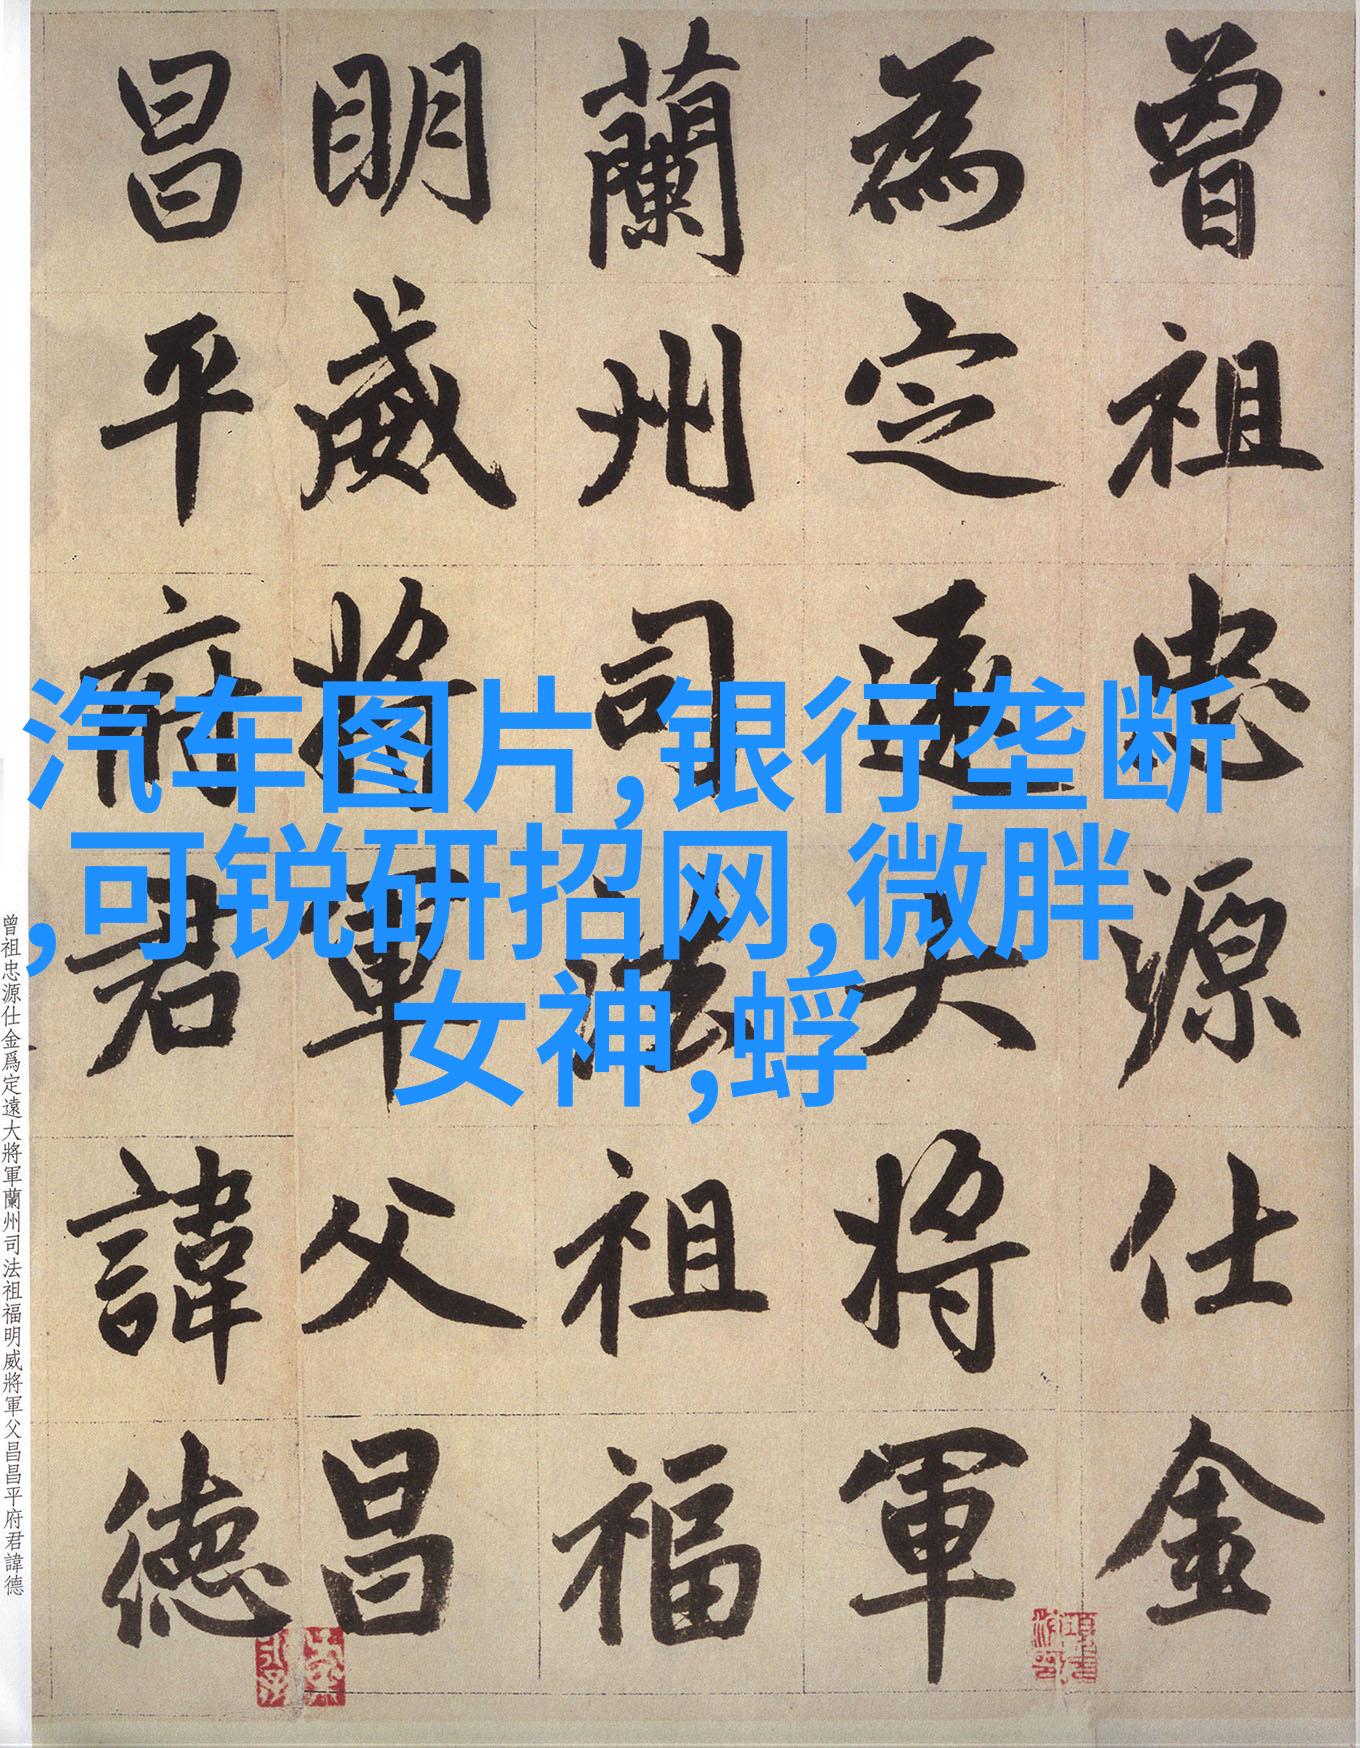 曾祖忠源仕金
為定遠大将軍
蘭州司法祖福
明威将軍父昌
昌平府君諱德
汽车图片,银行垄断
,可锐研招网,微胖
女神,蜉
曾祖忠源仕金爲定遠大將軍蘭州司法祖福明威將軍父昌昌平府君諱德